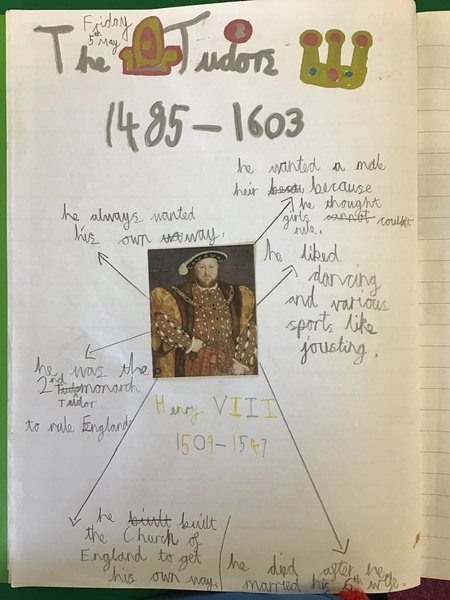 Friday
5th May
The Tudors
1485 – 1603
he wanted a male
heir because
he thought
girls cannot couldn't
rule.
he always wanted
his own way.
he liked
dancing
and various
sports like
jousting.
he was the
2nd monarch
Tudor
to rule England
Henry VIII
1509 – 1547
he built built
the Church of
England to get
his own way.
he died after he
married his 6th wife.